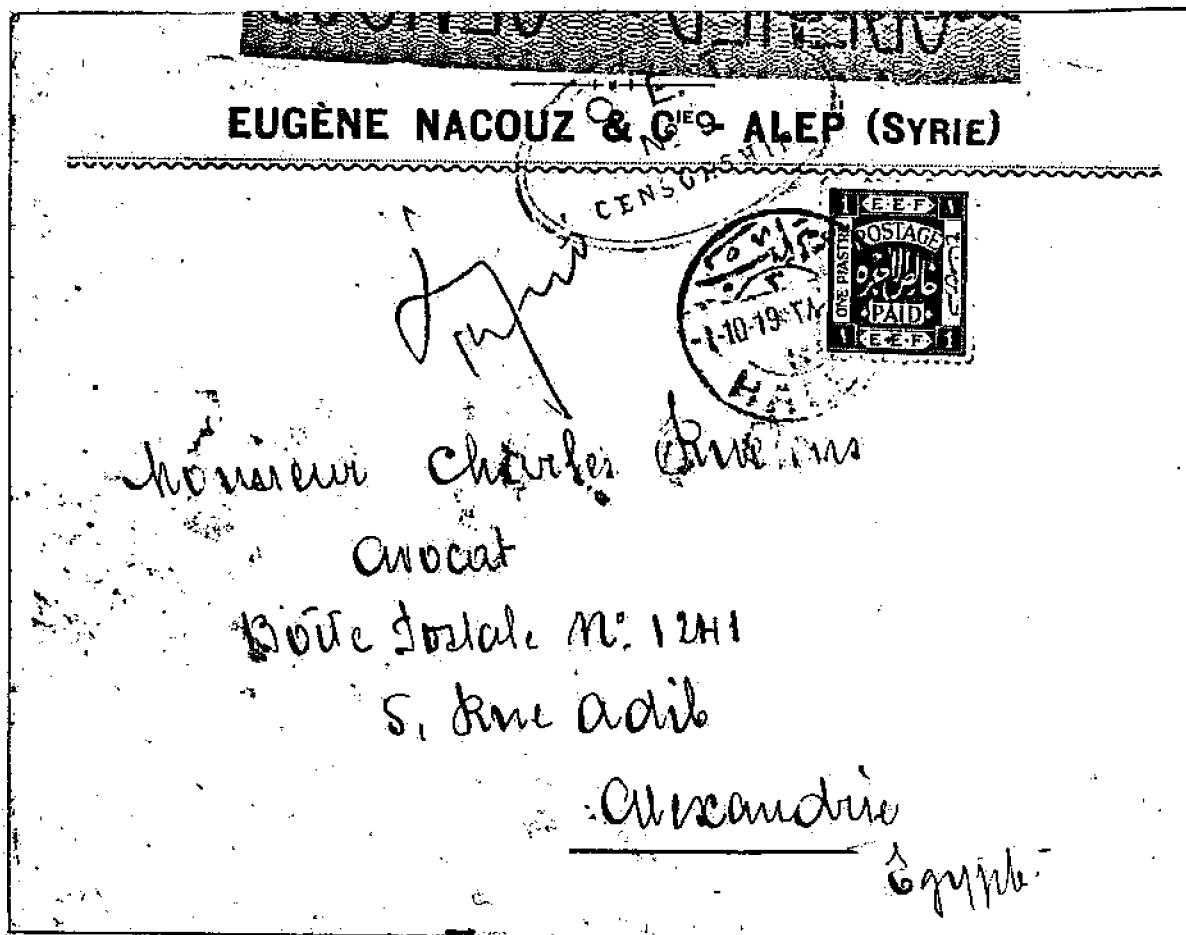 EUGÈNE NACOUZ & CIE - ALEP (SYRIE)
CENSORSHIP
1 E·E·F ١
POSTAGE
ONE PIASTRE
خالص الاجره
PAID
١ E·E·F 1
-1-10-19
Monsieur Charles
Avocat
Boîte Postale No. 1241
5, Rue Adib
Alexandrie
Égypte